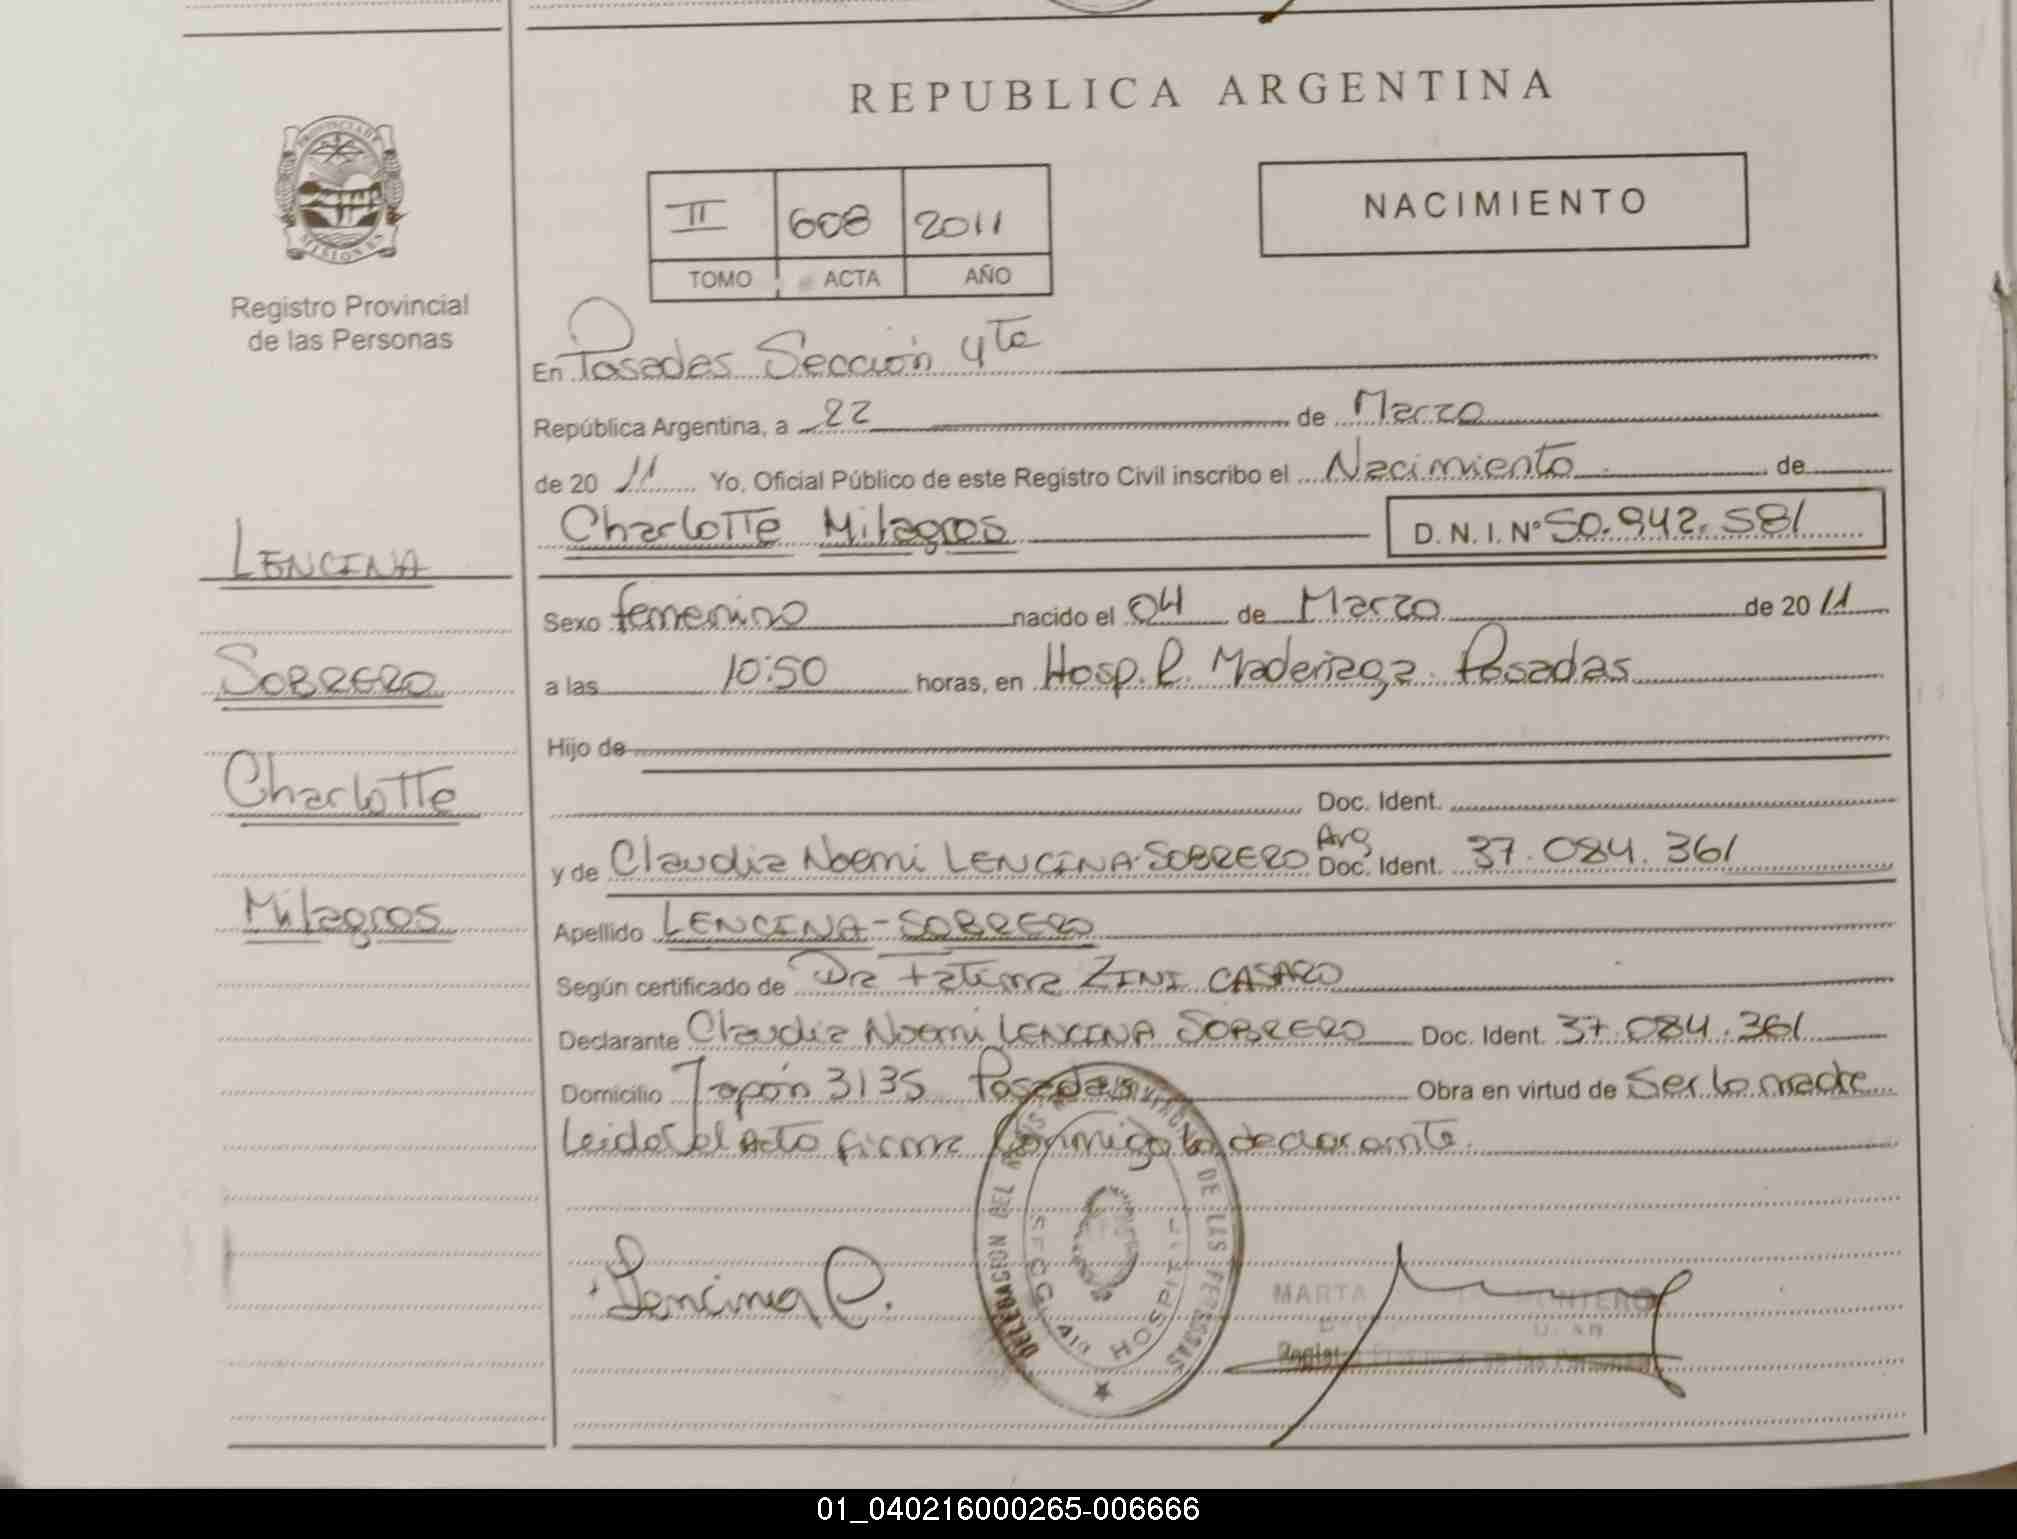 REPUBLICA ARGENTINA
PROVINCIA DE
MISIONES
Registro Provincial
de las Personas
II 608 2011
TOMO ACTA AÑO
NACIMIENTO
En Posadas Sección 4ta
República Argentina, a 22 de Marzo
de 20 11 Yo, Oficial Público de este Registro Civil inscribo el Nacimiento de
Charlotte Milagros D. N. I. Nº 50.942.581
LENCINA
SOBRERO
Charlotte
Milagros
Sexo femenino nacido el 04 de Marzo de 20 11
a las 10:50 horas, en Hosp. R. Maderiaga. Posadas
Hijo de
Doc. Ident.
y de Claudia Noemi LENCINA-SOBRERO Arg Doc. Ident. 37.084.361
Apellido LENCINA-SOBRERO
Según certificado de Dra Fatima ZINI CASARO
Declarante Claudia Noemi LENCINA SOBRERO Doc. Ident. 37.084.361
Domicilio Japón 3135 Posadas Obra en virtud de Ser la madre
Leida el Acto firma Conmigo la declarante.
Lencina C.
DELEGACION DE LAS PERSONAS
HOSPITAL
MARTA MONTERO
01_040216000265-006666